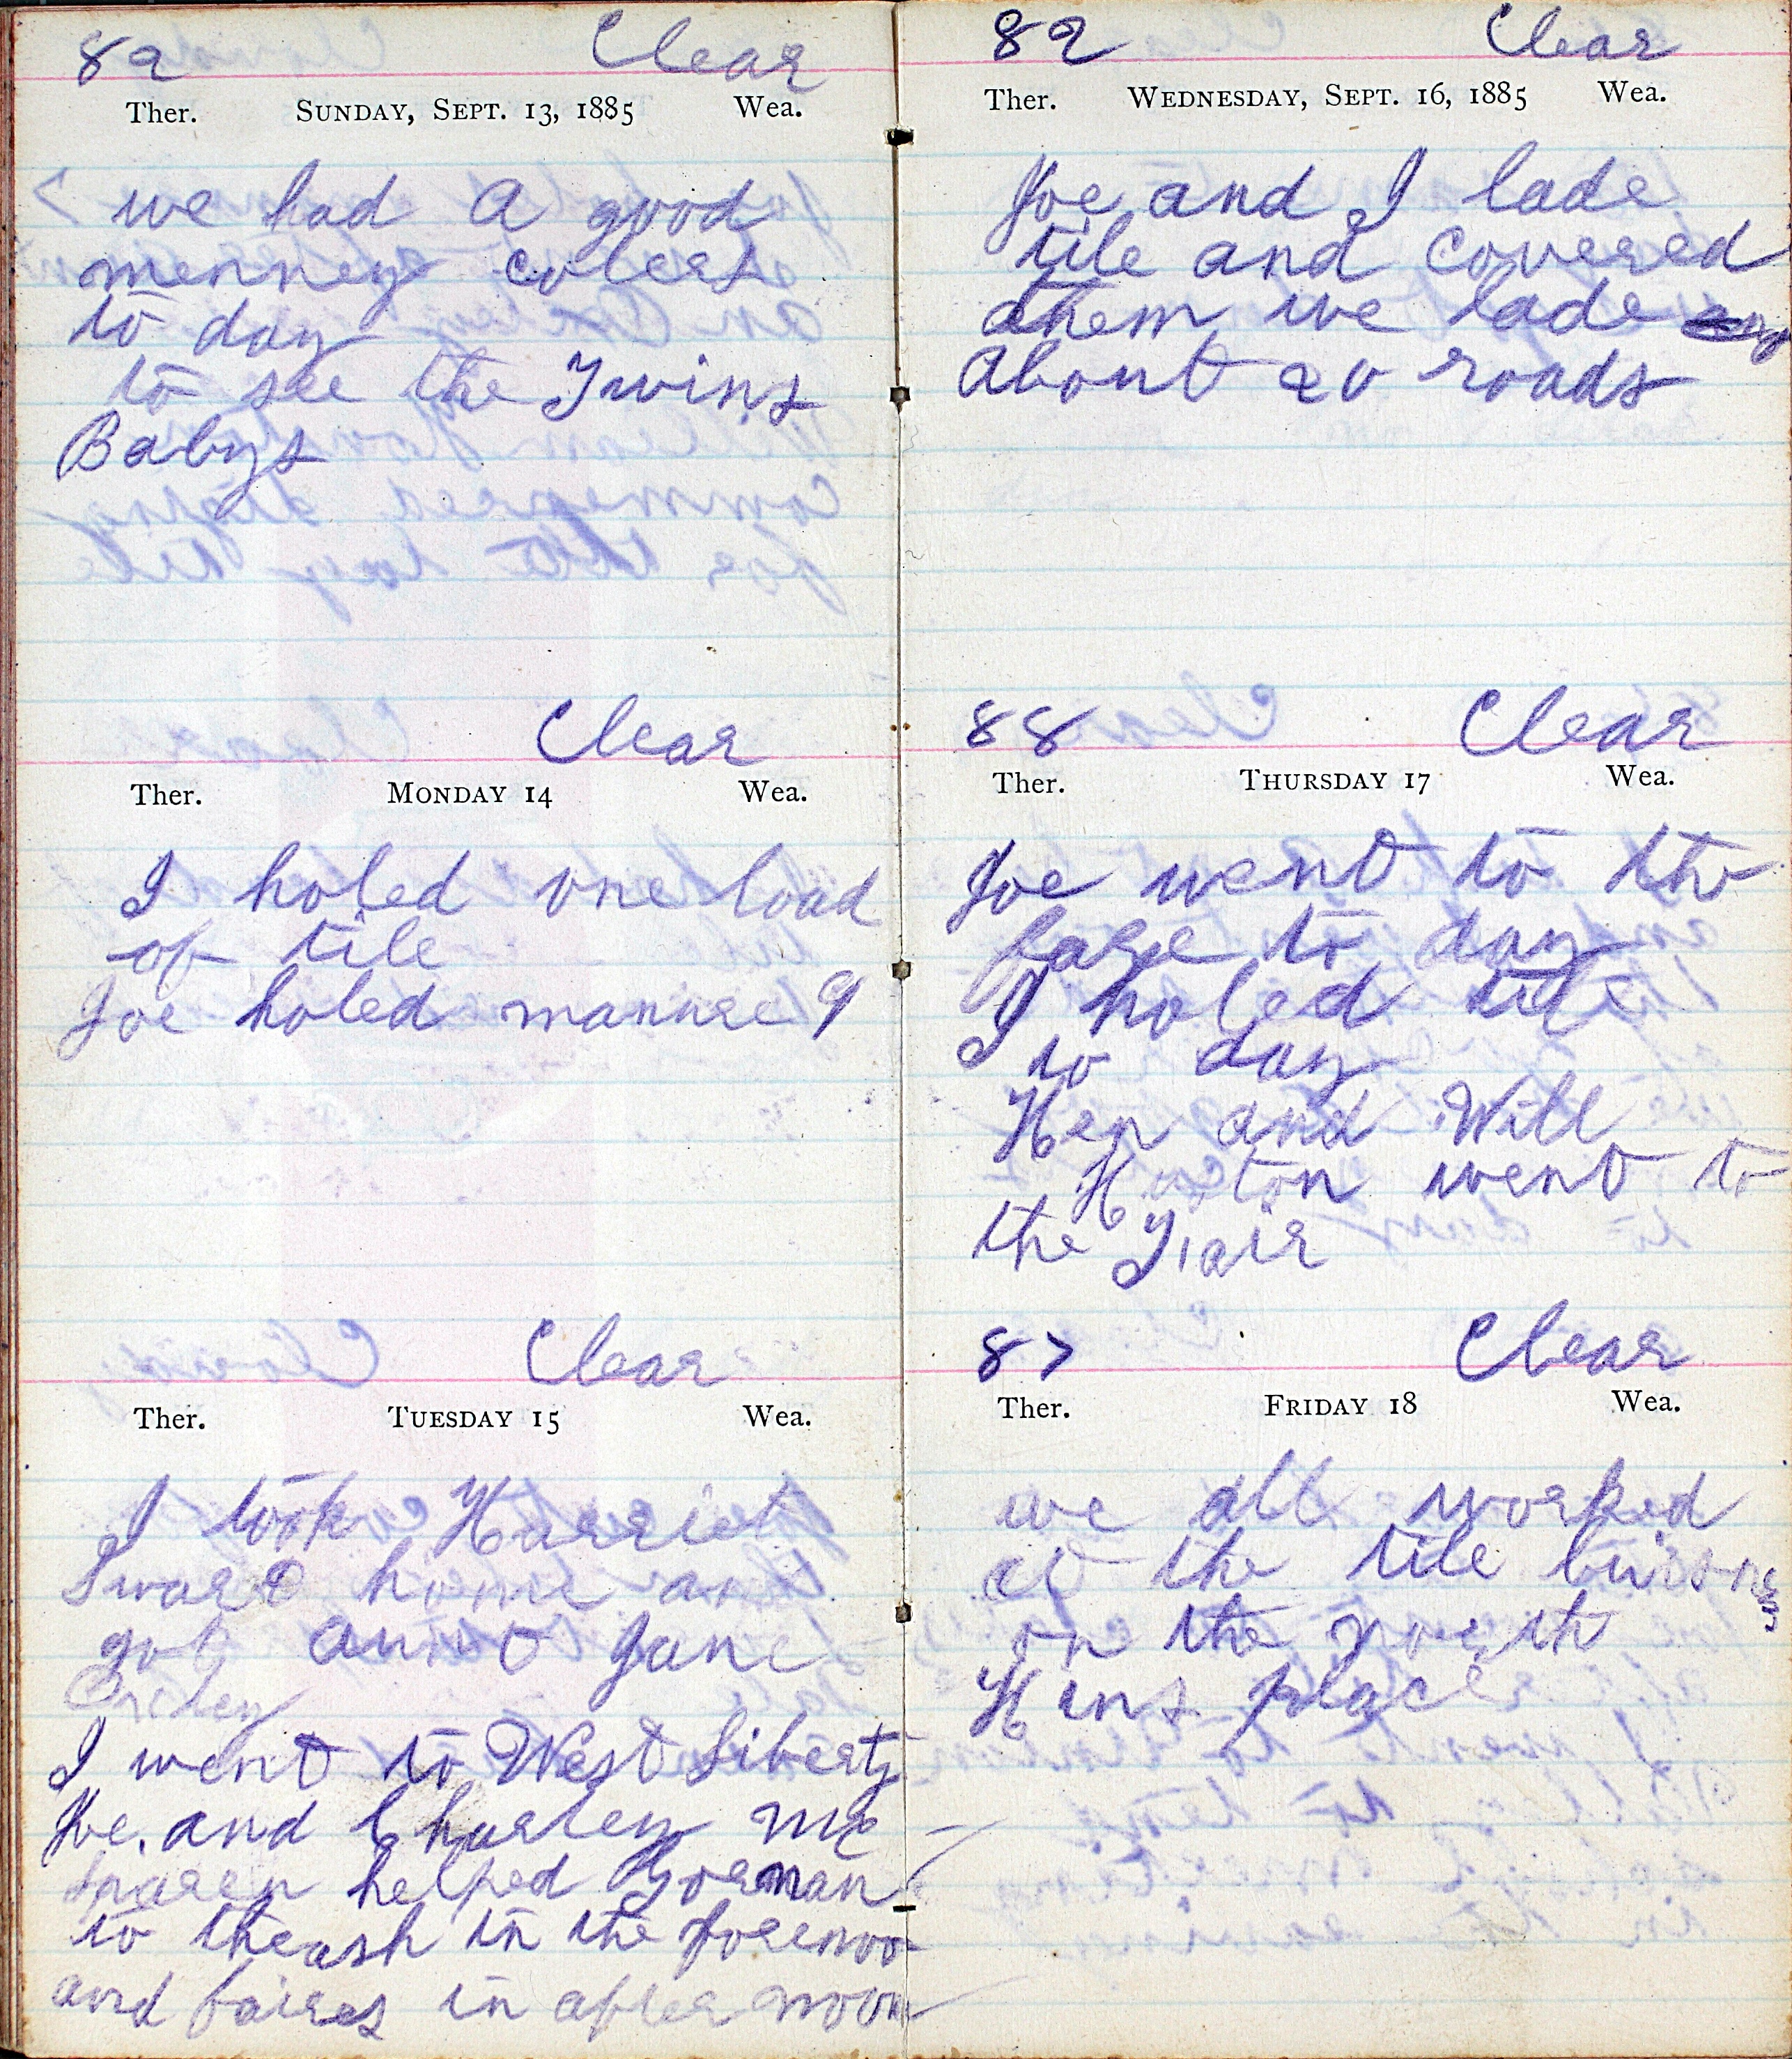 82 Clear
Ther. SUNDAY, SEPT. 13, 1885 Wea.
we had A good
menney colers
to day
to see the Twins
Babys
Clear
Ther. MONDAY 14 Wea.
I holed one load
of tile
Joe holed manure 9
Clear
Ther. TUESDAY 15 Wea.
I took Harriet
Sward home an
got aunt Jane
I went to West Liberty
Joe. and Charley Mc
Sparen helped Gorman
to thrash in the forenoo
and faires in after noon
82 Clear
Ther. WEDNESDAY, SEPT. 16, 1885 Wea.
Joe and I lade
tile and covered
them we lade
About 20 roads
88 Clear
Ther. THURSDAY 17 Wea.
Joe went to the
fare to day
I holed tile
to day
Hen and Will
went to
the Fair
87 Clear
Ther. FRIDAY 18 Wea.
we all worked
at the tile
on the north
Hens place